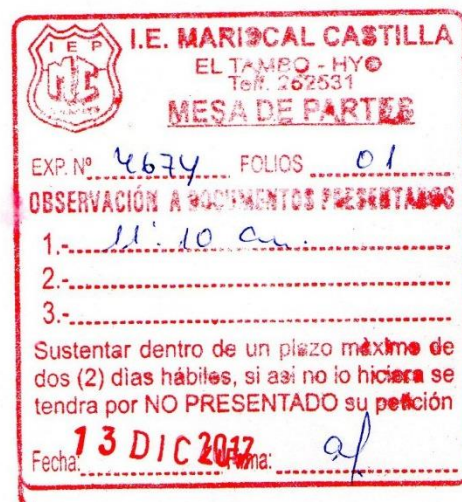 I E P
MC
I.E. MARISCAL CASTILLA
EL TAMBO - HYO
Telf. 262531
MESA DE PARTES
EXP. Nº 4674 FOLIOS 01
OBSERVACIÓN A DOCUMENTOS PRESENTADOS
1.- 11:10 am.
2.-
3.-
Sustentar dentro de un plazo máximo de
dos (2) dias hábiles, si asi no lo hiciera se
tendra por NO PRESENTADO su petición
Fecha: 13 DIC 2017 Firma: